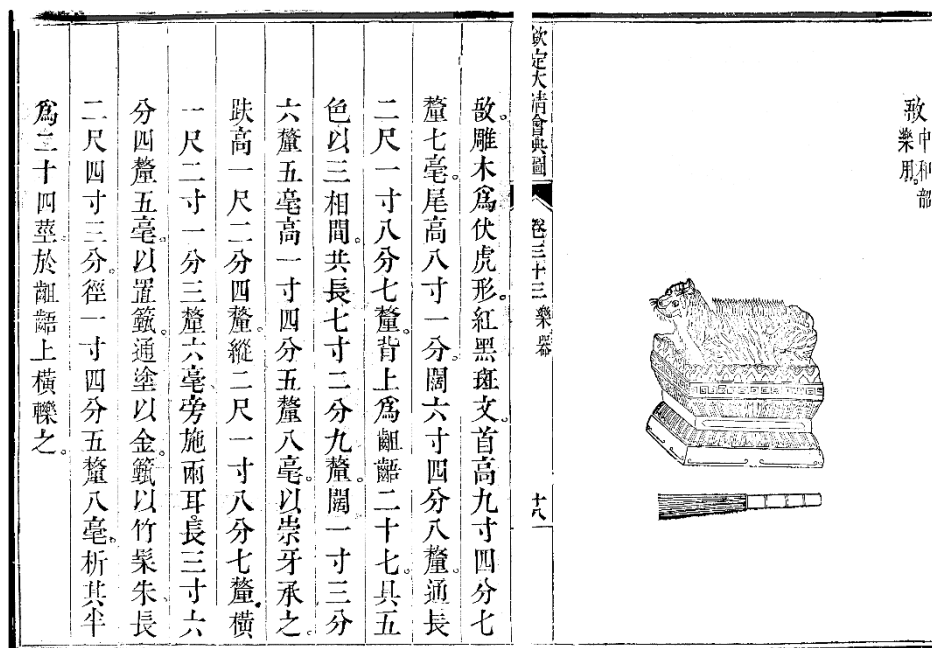 敔中和韶
樂用。
欽定大清會典圖 卷三十三 樂器 十八
敔。雕木爲伏虎形。紅黑斑文。首高九寸四分七
釐七毫。尾高八寸一分。闊六寸四分八釐。通長
二尺一寸八分七釐。背上爲齟齬二十七。具五
色以三相間。共長七寸二分九釐。闊一寸三分
六釐五毫。高一寸四分五釐八毫。以崇牙承之。
趺高一尺二分四釐。縱二尺一寸八分七釐。橫
一尺二寸一分三釐六毫。旁施兩耳。長三寸六
分四釐五毫。以置籈。通塗以金。籈以竹髹朱。長
二尺四寸三分。徑一寸四分五釐八毫。析其半
爲二十四莖。於齟齬上橫轢之。